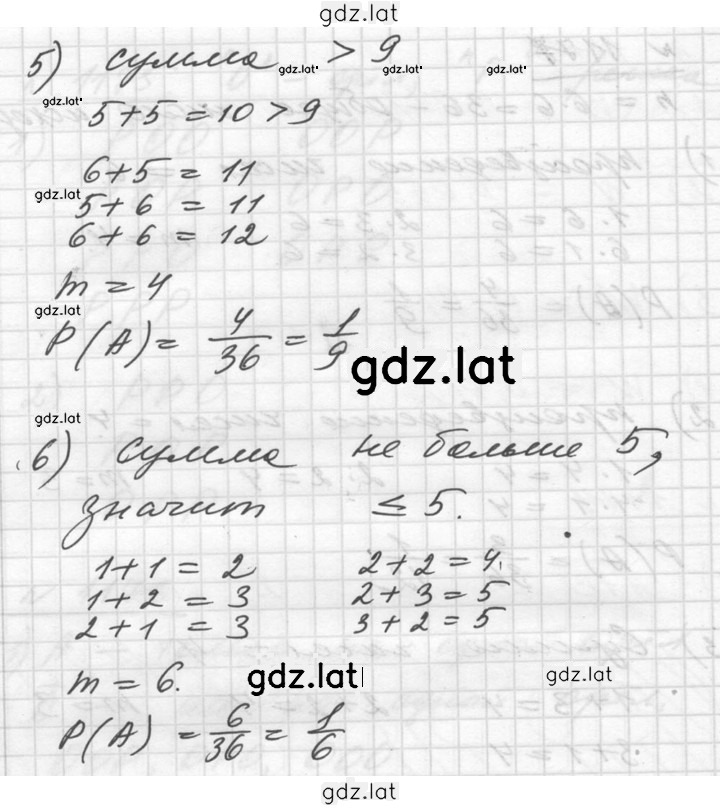 gdz.lat
5) сумма > 9
gdz.lat gdz.lat gdz.lat
gdz.lat
5+5=10>9
6+5=11
gdz.lat
5+6=11
6+6=12
m=4
gdz.lat
P(A)=4/36=1/9
gdz.lat
gdz.lat
6) сумма не больше 5,
значит ≤5.
1+1=2 2+2=4
1+2=3 2+3=5
2+1=3 3+2=5
m=6.
gdz.lat gdz.lat
P(A)=6/36=1/6
gdz.lat